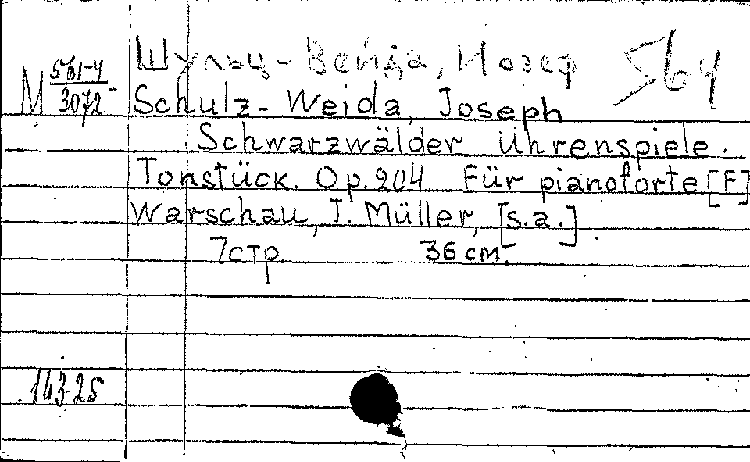 Шульц-Вейда, Иозеф
М 561-4/3072
Schulz-Weida, Joseph
Schwarzwälder Uhrenspiele.
Tonstück. Op. 204 Für pianoforte [F]
Warschau, J. Müller, [s.a.]
7 стр. 36 см.
14325